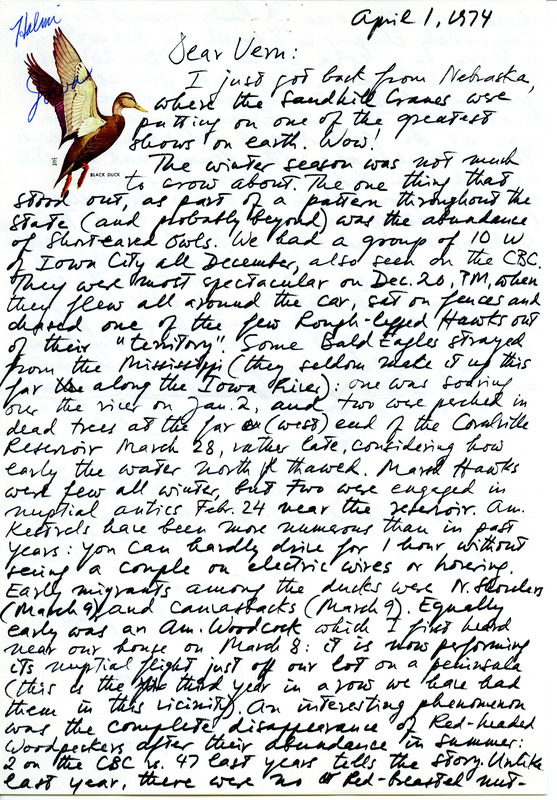 April 1, 1974
Halmi
BLACK DUCK
Dear Vern:
I just got back from Nebraska,
where the Sandhill Cranes were
putting on one of the greatest
shows on earth. Wow!
The winter season was not much
to crow about. The one thing that
stood out, as part of a pattern throughout the
state (and probably beyond) was the abundance
of Short-eared Owls. We had a group of 10 W
of Iowa City all December, also seen on the CBC.
They were most spectacular on Dec. 20, PM, when
they flew all around the car, sat on fences and
chased one of the few Rough-legged Hawks out
of their "territory". Some Bald Eagles strayed
from the Mississippi (they seldom make it up this
far along the Iowa River): one was soaring
over the river on Jan. 2, and two were perched in
dead trees at the far (west) end of the Coralville
Reservoir March 28, rather late, considering how
early the water north thawed. Marsh Hawks
were few all winter, but two were engaged in
nuptial antics Feb. 24 near the reservoir. Am.
Kestrels have been more numerous than in past
years: you can hardly drive for 1 hour without
seeing a couple on electric wires or hovering.
Early migrants among the ducks were N. Shovelers
(March 9) and Canvasbacks (March 9). Equally
early was an Am. Woodcock which I first heard
near our house on March 8: it is now performing
its nuptial flight just off our lot on a peninsula
(this is the third year in a row we have had
them in this vicinity). An interesting phenomenon
was the complete disappearance of Red-headed
Woodpeckers after their abundance in summer:
2 on the CBC vs. 47 last years tells the story. Unlike
last year, there were no Red-breasted nut-